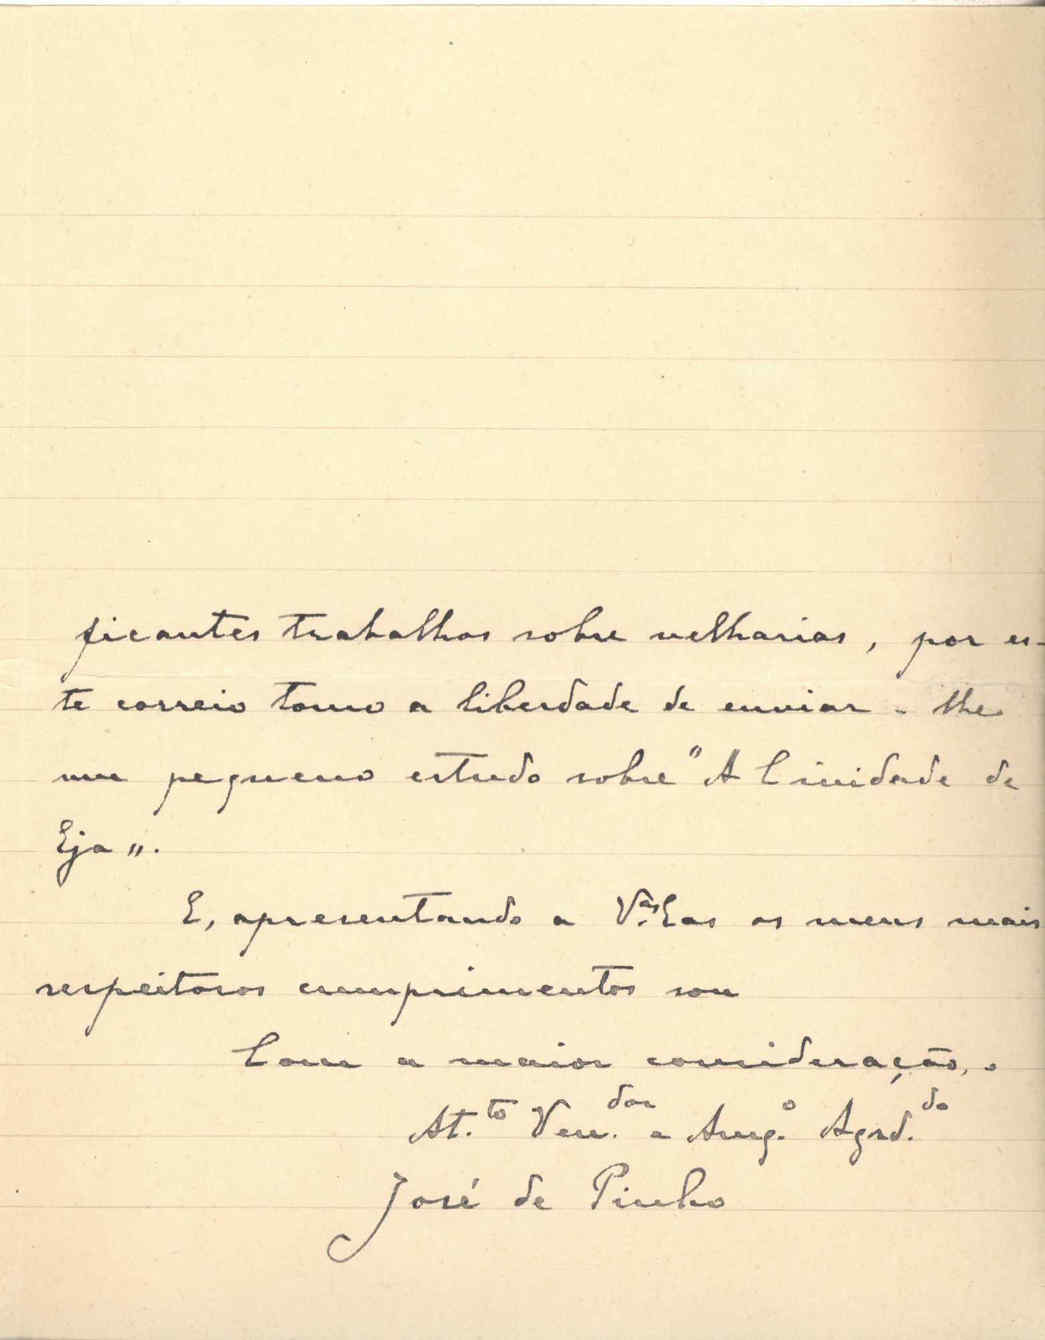 ficantes trabalhos sobre velharias, por es-
te correio tomo a liberdade de enviar-lhe
um pequeno estudo sobre "A Cividade de
Eja".
E, apresentando a V.as Eas os meus mais
respeitosos cumprimentos sou
Com a maior consideração, o
At.to Ven.dor e Amg.o Agrd.do
José de Pinho